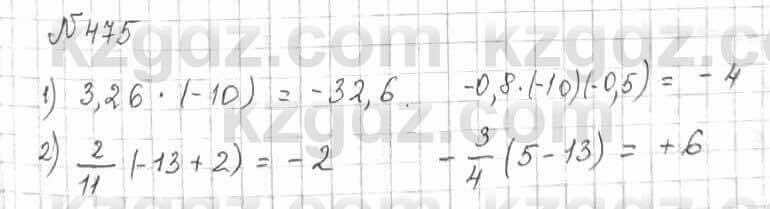 №475
1) 3,26 · (-10) = -32,6. -0,8·(-10)(-0,5) = -4
2) 2/11 (-13+2) = -2 -3/4 (5-13) = +6
kzgdz.com kzgdz.com
kzgdz.com